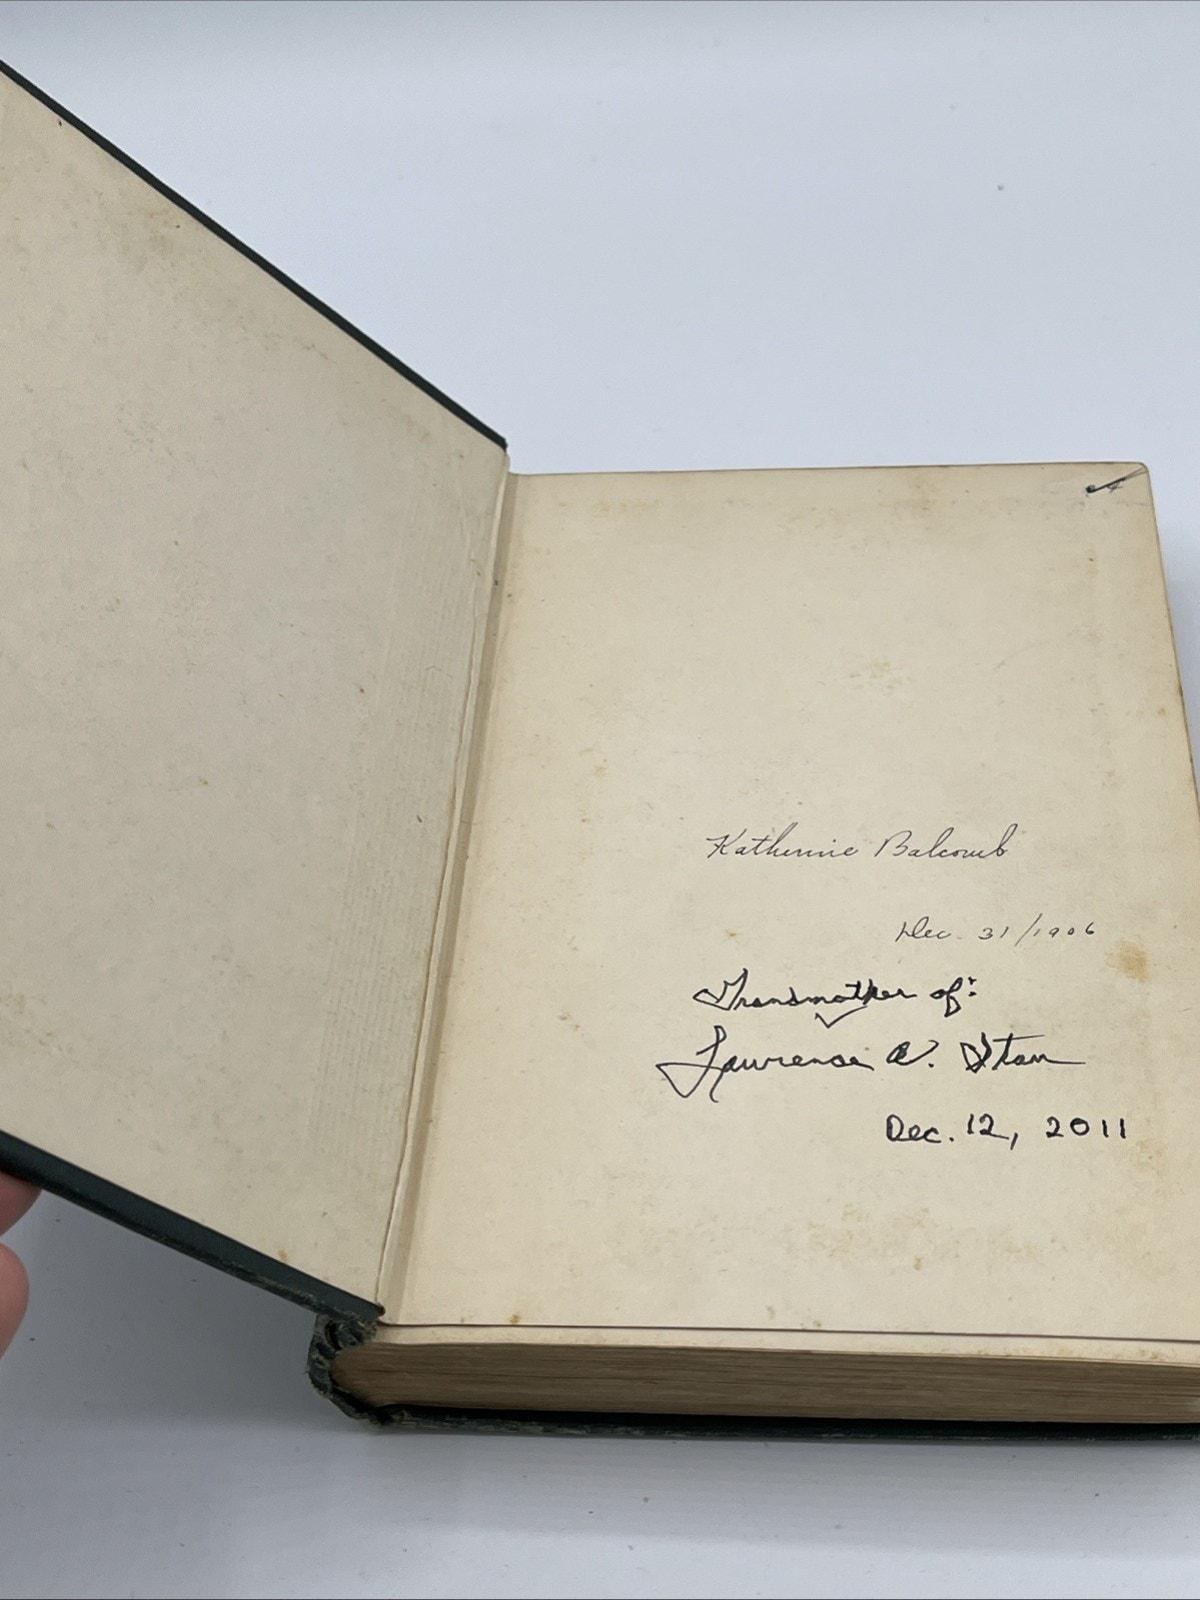 Katherine Balcomb
Dec. 31/1906
Grandmother of:
Lawrence
Dec. 12, 2011